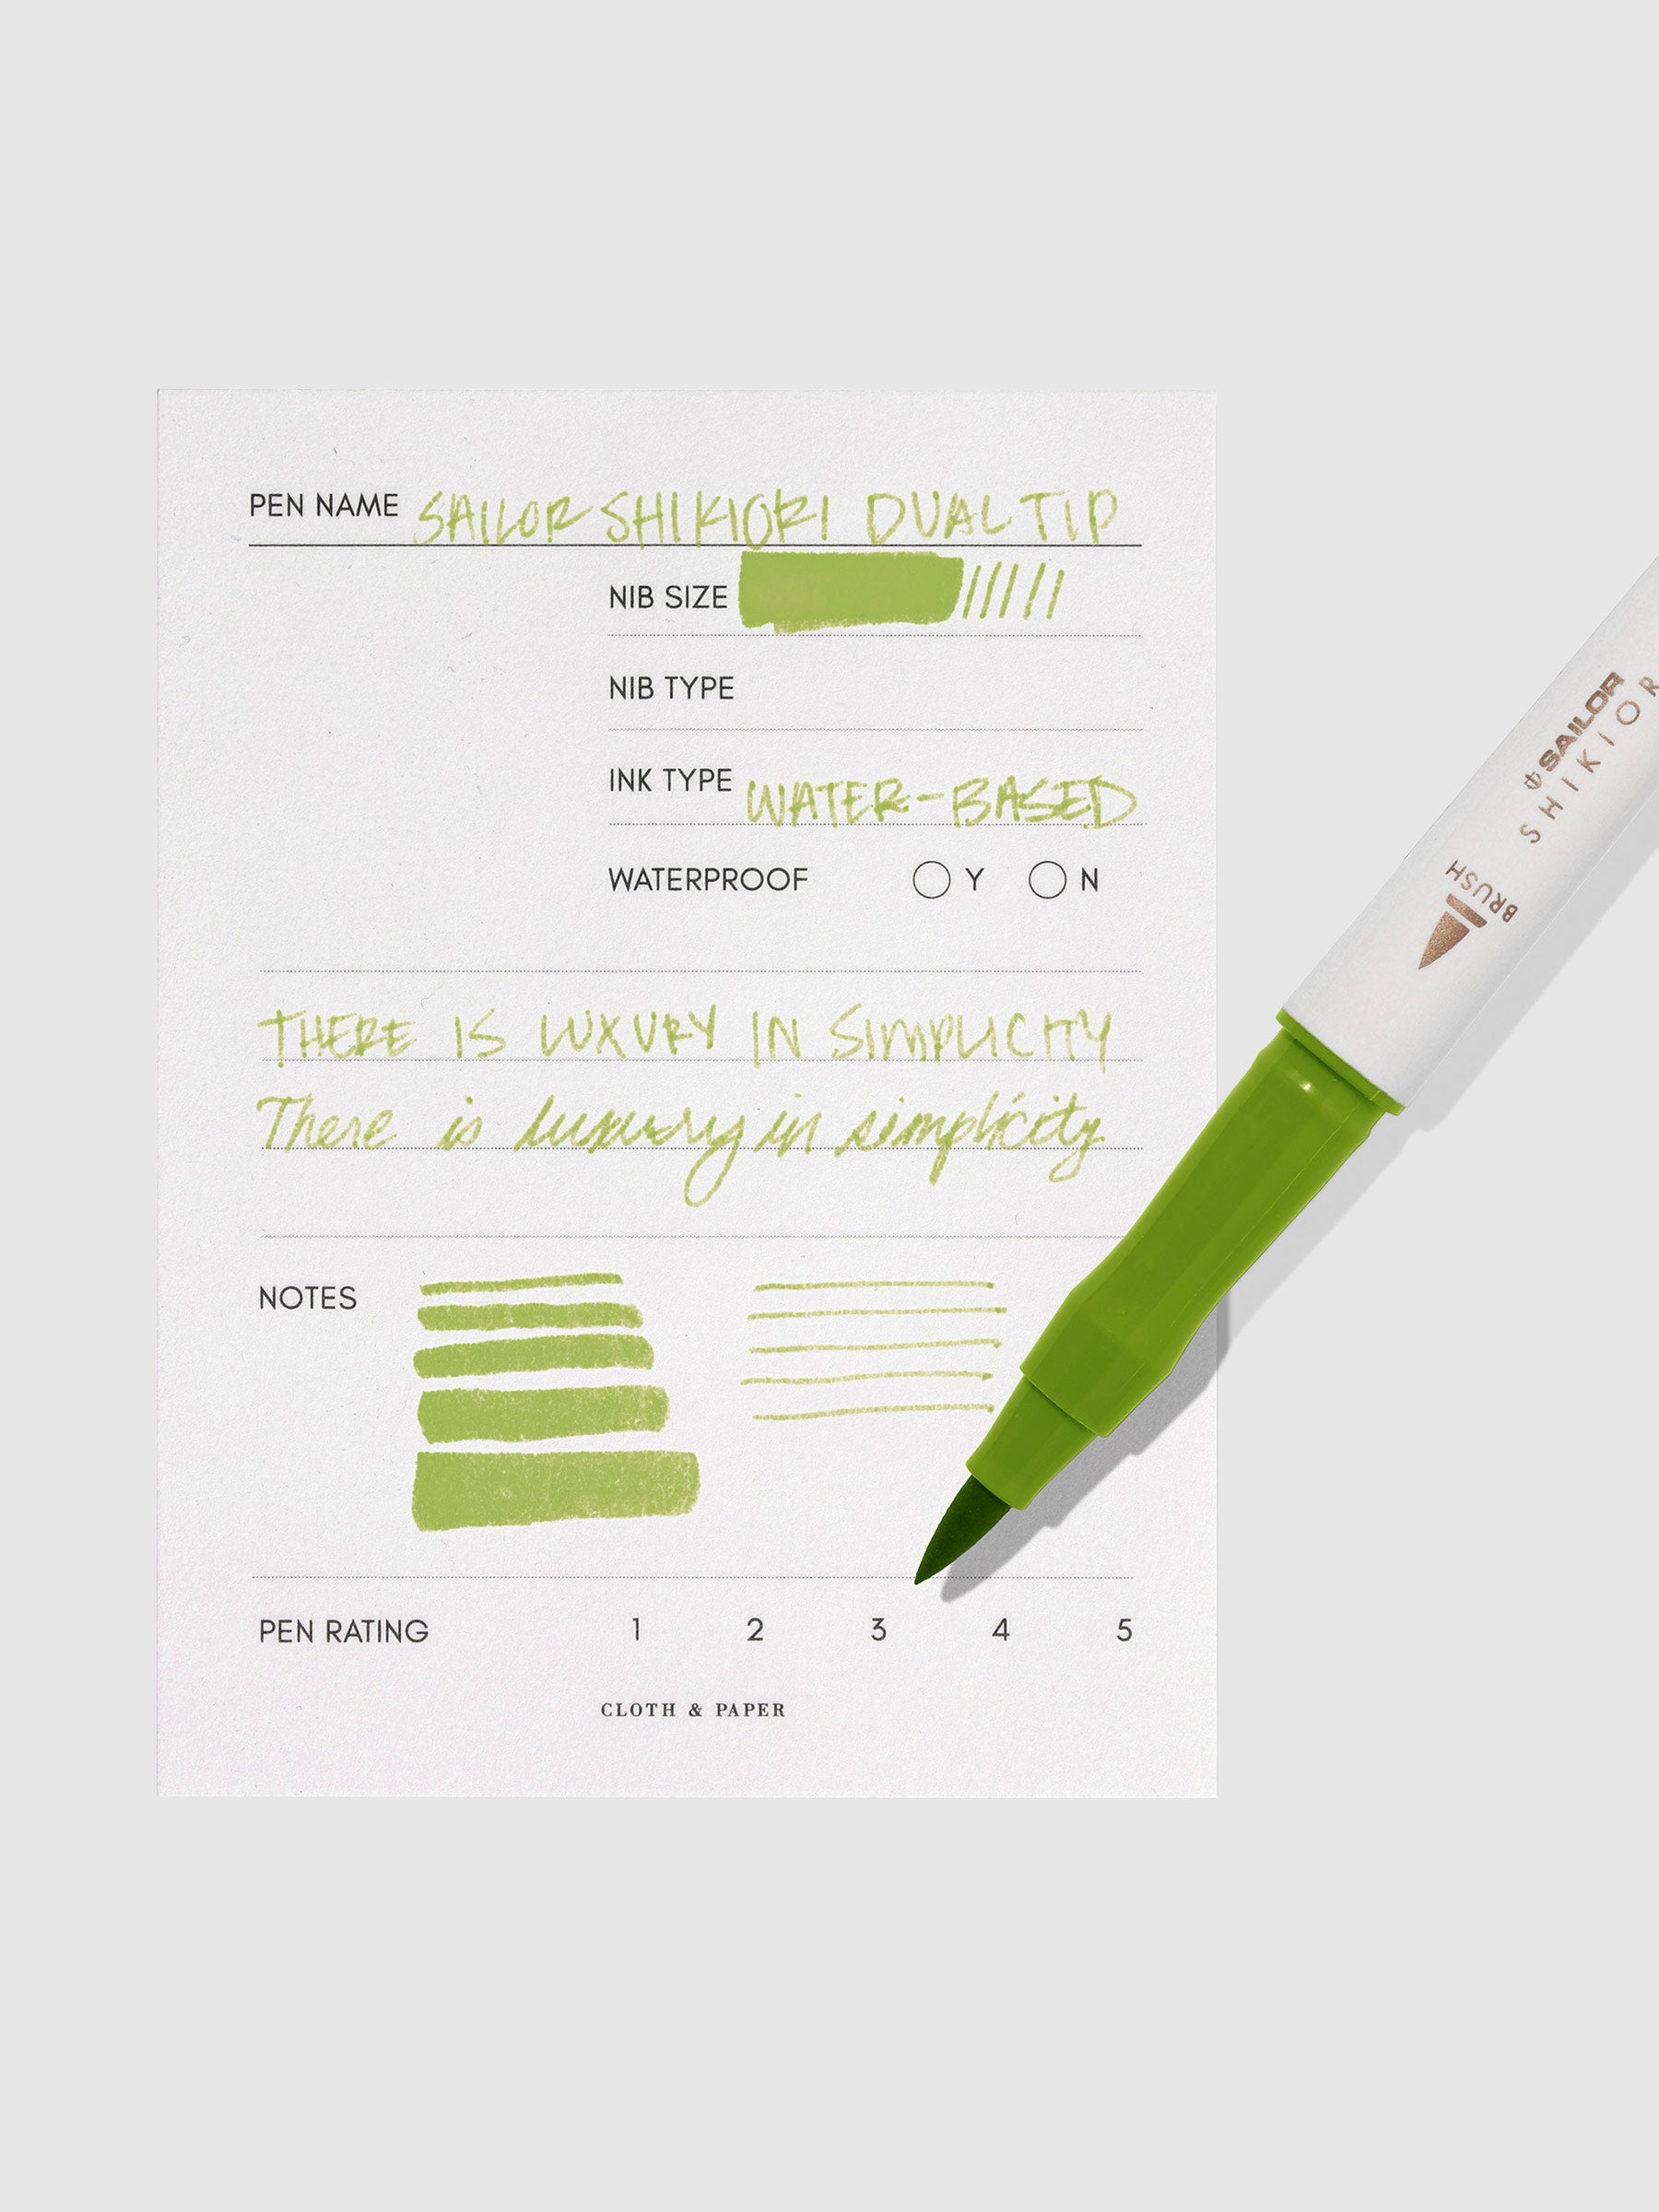 PEN NAME SAILOR SHIKIORI DUAL TIP
NIB SIZE
NIB TYPE
INK TYPE WATER-BASED
WATERPROOF Y N
THERE IS LUXURY IN SIMPLICITY
There is luxury in simplicity
NOTES
PEN RATING 1 2 3 4 5
CLOTH & PAPER
SAILOR
SHIKIOR
BRUSH